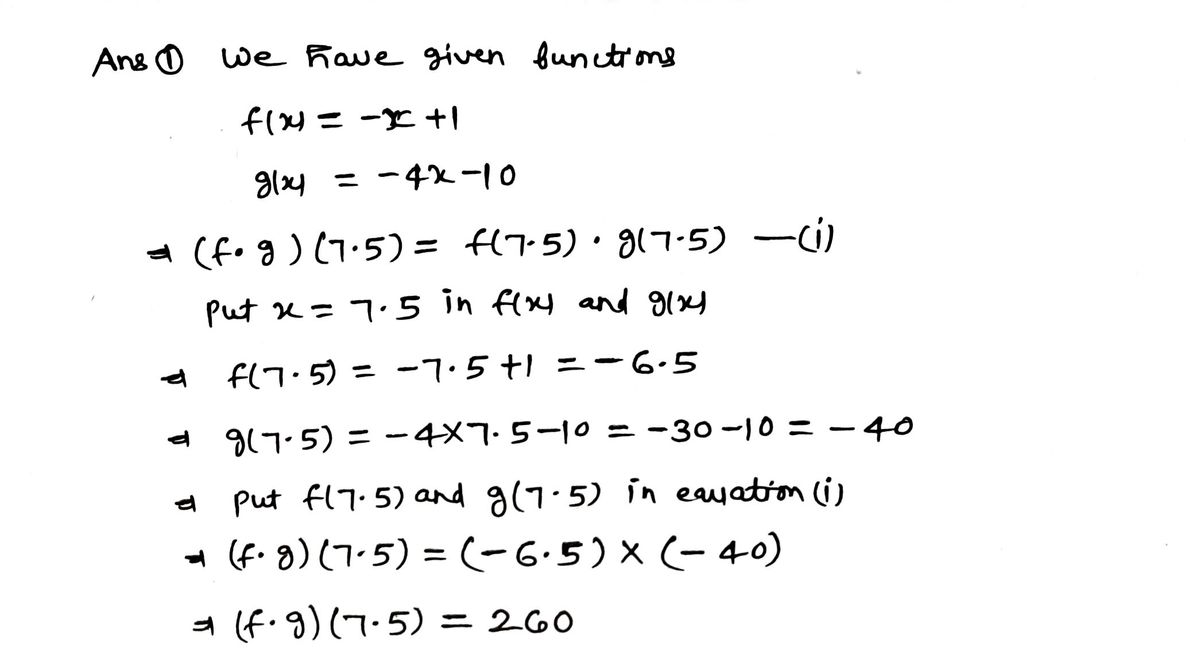 Ans ① We have given functions
f(x) = -x +1
g(x) = -4x -10
⇒ (f·g)(7·5) = f(7·5) · g(7·5) —(i)
Put x = 7·5 in f(x) and g(x)
⇒ f(7·5) = -7·5 +1 = -6·5
⇒ g(7·5) = -4×7·5-10 = -30-10 = -40
⇒ Put f(7·5) and g(7·5) in equation (i)
⇒ (f·g)(7·5) = (-6·5) × (-40)
⇒ (f·g)(7·5) = 260